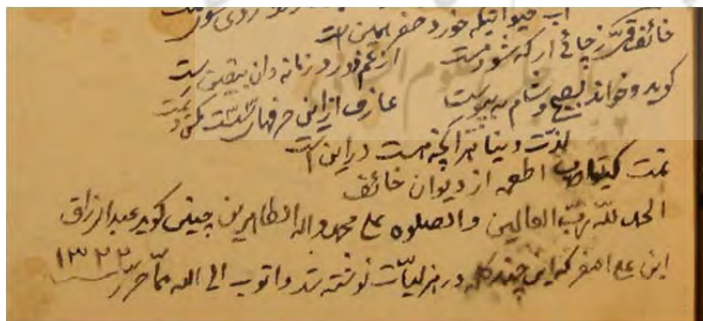 آب حیوانیکه خورد خضر همین است
خائف قر ز جائی ار که شود مست
از غم دور زمانه دان بیقین رست
گوید و خواند بصبح و شام به پیوست
عارف از این حرفها
لذت دنیا هر آنچه هست در این است
تمت کتاب اطعمه از دیوان خائف
الحمد لله رب العالمین والصلوه علی محمد واله الطاهرین چنین گوید عبدالرزاق
ابن علی اصغر که این چند کلمه در هزلیات نوشته شد و اتوب الی الله مما حرر
۱۳۲۲